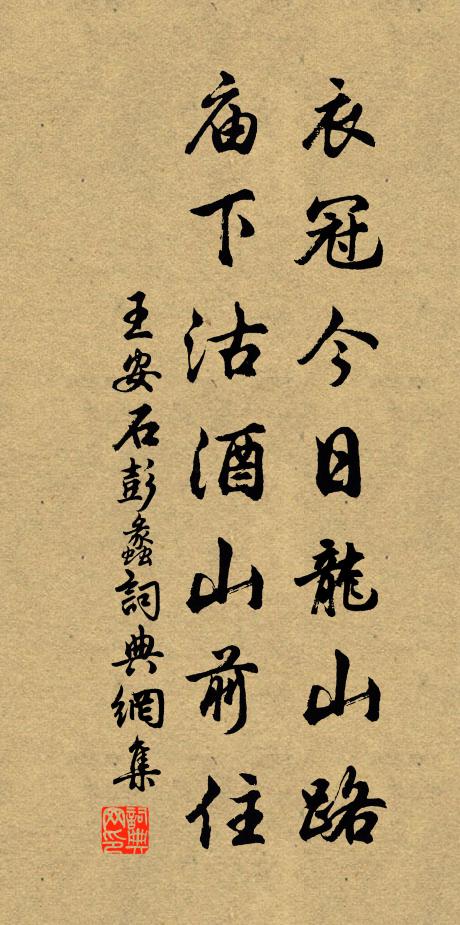 衣冠今日龍山路
庙下沽酒山前住
王安石彭蠡詞典網集
詞典网印